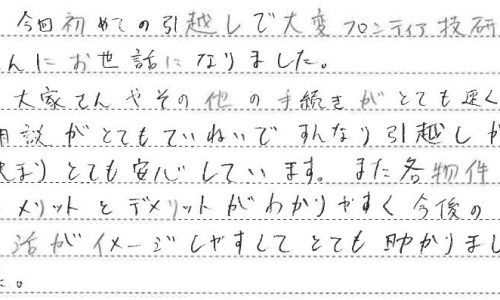 今回初めての引越しで大変フロンティア技研
んにお世話になりました。
大家さんやその他の手続きがとても速く
相談がとてもていねいですんなり引越しが
決まりとても安心しています。また各物件
メリットとデメリットがわかりやすく今後の
活がイメージしやすくてとても助かりまし
た。